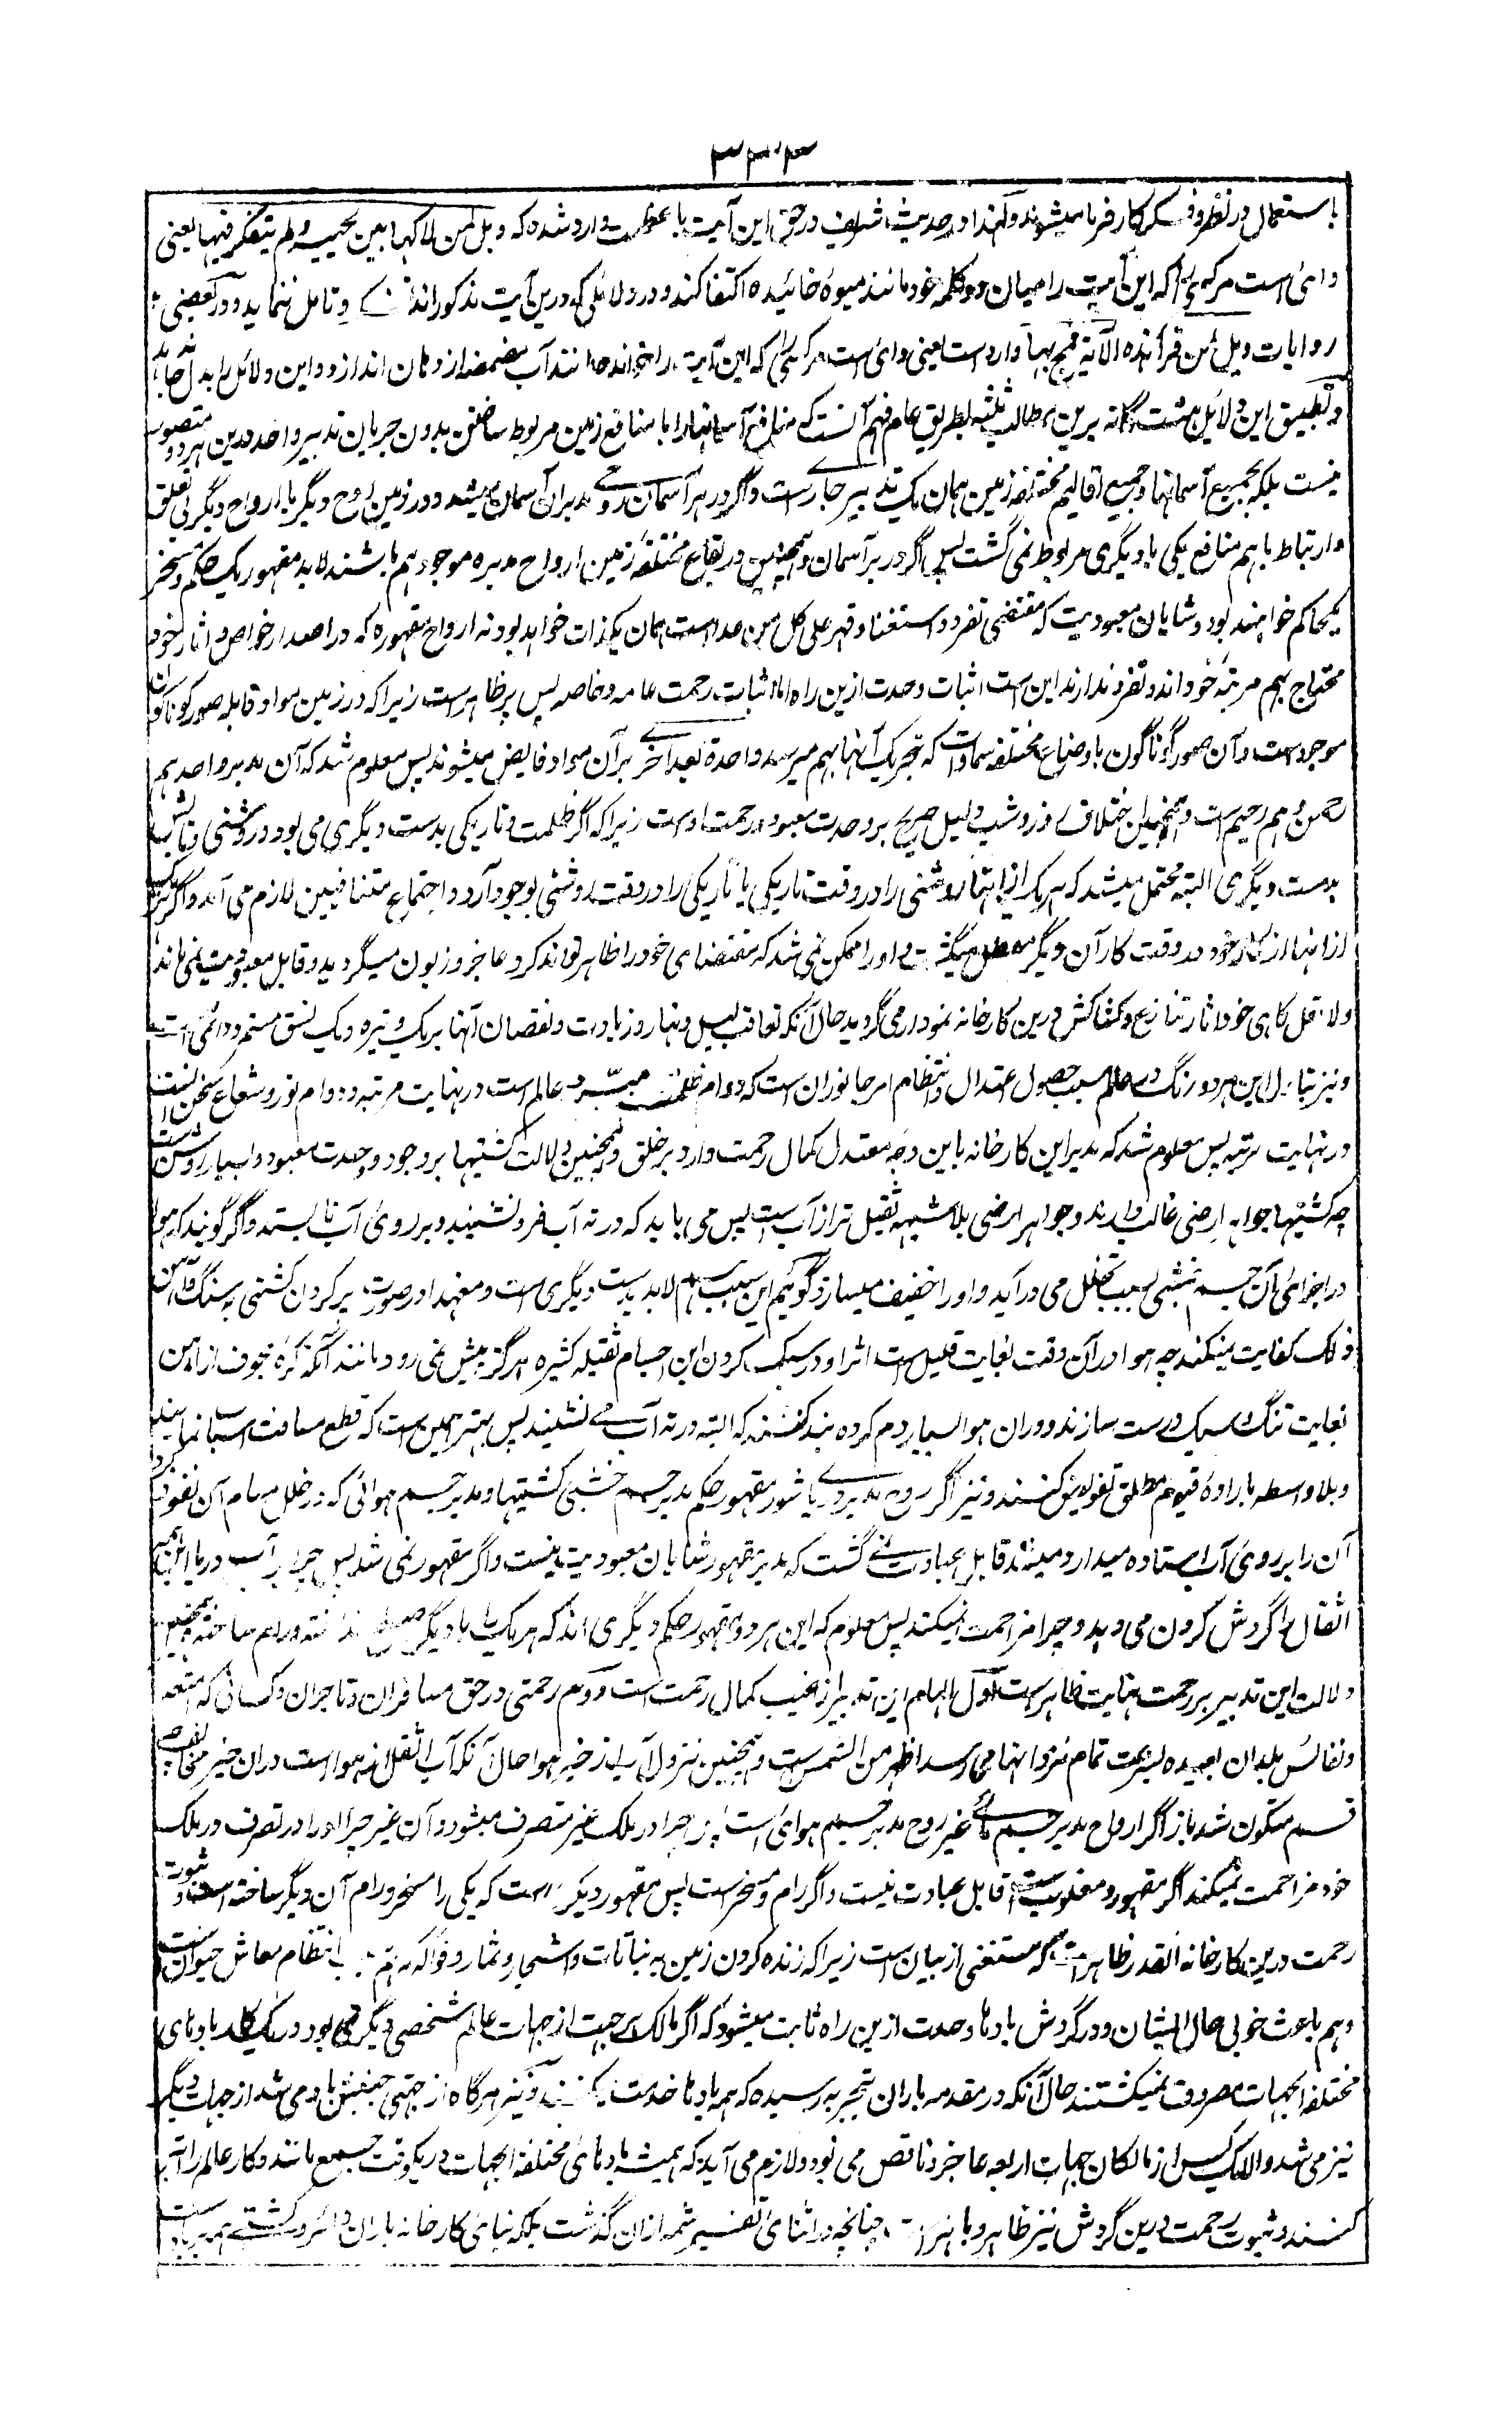 ۳۳۴
باستعمال در نظر و فکر کارفرما میشوند ولهذا در حدیث شریف در حق این آیت با عظمت وارد شده که ویل لمن لاکها بین لحییه ولم یتفکر فیها یعنی
وای است مر کسی را که این آیت را میان دو کله خود مانند میوه خائیده اکتفا کند و در دلائلی که درین آیت مذکور اند و تامل ننماید و در بعضی
روایات ویل لمن قرأ هذه الآیة فمج بها وارد است یعنی وای است مر کسی را که این آیت را خواند مانند آب مضمضه از دهان اندازد و این دلائل را بدل
و تطبیق این دلائل هشت گانه برین مطالب ثلثه بطریق عام فهم آنست که منافع آسمانها را با منافع زمین مربوط ساختن بدون جریان تدبیر واحد درین هر دو متصور
نیست بلکه بجمیع آسمانها و جمیع اقالیم مختلفه زمین همان یک تدبیر جاریست و اگر در هر آسمان روحی مدبر آن آسمان میشد و در زمین روح دیگر یا ارواح دیگر بی تعلق
و ارتباط باهم منافع یکی با دیگری مربوط نمی گشت پس اگر در هر آسمان و همچنین در بقاع مختلفه زمین ارواح مدبره موجود هم باشند لابد مقهور یک حکم و مسخر
یک حاکم خواهند بود و شایان معبودیت که مقتضی تفرد و استغنا و قهر علی کل من عداه است همان یک ذات خواهد بود نه ارواح مقهوره که در اصدار خواص و آثار خود
محتاج بهم مرتبه خود اند و تفرد ندارند این است اثبات وحدت ازین راه اما اثبات رحمت عامه و خاصه پس پر ظاهر است زیرا که در زمین مواد قابله صور گوناگون
موجود است و آن صور گوناگون باوضاع مختلفه سماوات که بتحریک آنها بهم میرسد واحدة بعد اخری بر آن مواد فایض میشوند پس معلوم شد که آن مدبر واحد هم
رحمن و هم رحیم است و همچنین اختلاف روز و شب دلیل صریح بر وحدت معبود و رحمت اوست زیرا که اگر ظلمت و تاریکی بدست دیگری می بود و روشنی و تابش
بدست دیگری البته محتمل میشد که هر یک از اینها روشنی را در وقت تاریکی یا تاریکی را در وقت روشنی بوجود آرد و اجتماع متنافیین لازم می آمد و اگر یکی
از اینها از کار خود در وقت کار آن دیگر معطل میگشت و او را ممکن نمی شد که مقتضای خود را ظاهر تواند کرد عاجز و زبون میگردید و قابل معبودیت نمی ماند
ولا اقل گاهی خود آثار تنازع و کشاکش درین کارخانه نمودار می گردید حال آنکه تعاقب لیل و نهار و زیادت و نقصان آنها بر یک وتیره و یک نسق مستمر و دائمی است
و نیز تبادل این هر دو رنگ در عالم سبب حصول اعتدال و انتظام امر جانوران است که دوام ظلمت مبرد عالم است در نهایت مرتبه و دوام نور و شعاع مسخن آنست
در نهایت مرتبه پس معلوم شد که مدبر این کارخانه باین وجه معتدل کمال رحمت دارد بر خلق و همچنین دلالت کشتیها بر وجود وحدت معبود بسیار روشن است
چه کشتیها جواهر ارضی غالب دارند و جواهر ارضی بلا شبهه ثقیل تر از آب است پس می باید که در ته آب فرو نشیند و بر روی آب نایستد و اگر گویند که هوا
در اجزای آن جسم خشبی بسبب تخلل می درآید و او را خفیف میسازد گوئیم این سبب هم لابد بدست دیگری است و معهذا در صورت پر کردن کشتی به سنگ و آهن
ذلک کفایت نمیکند چه هوا در آن وقت بغایت قلیل است اثر او در سبک کردن این اجسام ثقیله کثیره هرگز پیش نمی رود مانند آنکه کره مجوف از آهن
بغایت تنگ و سبک درست سازند و دران هوا بسیار دم کرده بند کنند که البته در ته آب می نشیند پس بهتر همین است که قطع مسافت اسباب نمایند
و بلا واسطه باراده قیوم مطلق تفویض کنند و نیز اگر روح مدبر دریا شور مقهور حکم مدبر جسم خشبی کشتیها و مدبر جسم هوائی که در خلل مسام آن نفوذ کرده
آن را بر روی آب ایستاده میدارد میشد قابل عبادت نمی گشت که مدبر مقهور شایان معبودیت نیست و اگر مقهور نمی شد پس چرا بر آب دریا این همه
اثقال را گردش کردن می دهد و چرا مزاحمت نمیکند پس معلوم که این هر دو مقهور حکم دیگری اند که هر یک را با دیگر ... ورام ساخته و همچنین
دلالت این تدبیر بر رحمت بنهایت ظاهر است اول الهام این تدبیر از غیب کمال رحمت است و دوم رحمتی در حق مسافران و تاجران و کسانی که امتعه
و نفائس بلدان بعیده بسرعت تمام نزد اینها می رسد اظهر من الشمس است و همچنین نزول آب از حیز هوا حال آنکه آب اثقل از هوا است دران حیز مخالف
قسم متکون شد باز اگر ارواح مدبر جسم مائی غیر روح مدبر جسم هوای است پس چرا در ملک غیر متصرف میشود و آن غیر چرا او را در تصرف در ملک
خود مزاحمت نمیکند اگر مقهور و مغلوب است قابل عبادت نیست و اگر رام و مسخر است پس مقهور دیگر است که یکی را مسخر و رام آن دیگر ساخته است و ثبوت
رحمت درین کارخانه آنقدر ظاهر است که مستغنی از بیان است زیرا که زنده کردن زمین به نباتات و اشجار و ثمار و فواکه هم انتظام معاش حیوانست
و هم باعث خوبی حال ایشان و در گردش بادها وحدت ازین راه ثابت میشود که اگر مالک هر جهت از جهات عالم شخصی دیگر می بود در یک کار بادهای
مختلفة الجهات مصروف نمیگشتند حال آنکه در مقدمه باران تجربه رسیده که همه بادها خدمت میکنند و نیز هرگاه از جهتی جنبش باد می شد از جهات دیگر
نیز می شد والا یک کس از مالکان جهات اربعه عاجز و ناقص می بود و لازم می آید که همیشه بادهای مختلفة الجهات در یک وقت جمع مانند و کار عالم را ابتر
کنند و ثبوت رحمت درین گردش نیز ظاهر و باهر است چنانچه در اثنای تفسیر شمه ازان گذشت بلکه بنای کارخانه باران و دائر و کشتی همه بر باد است